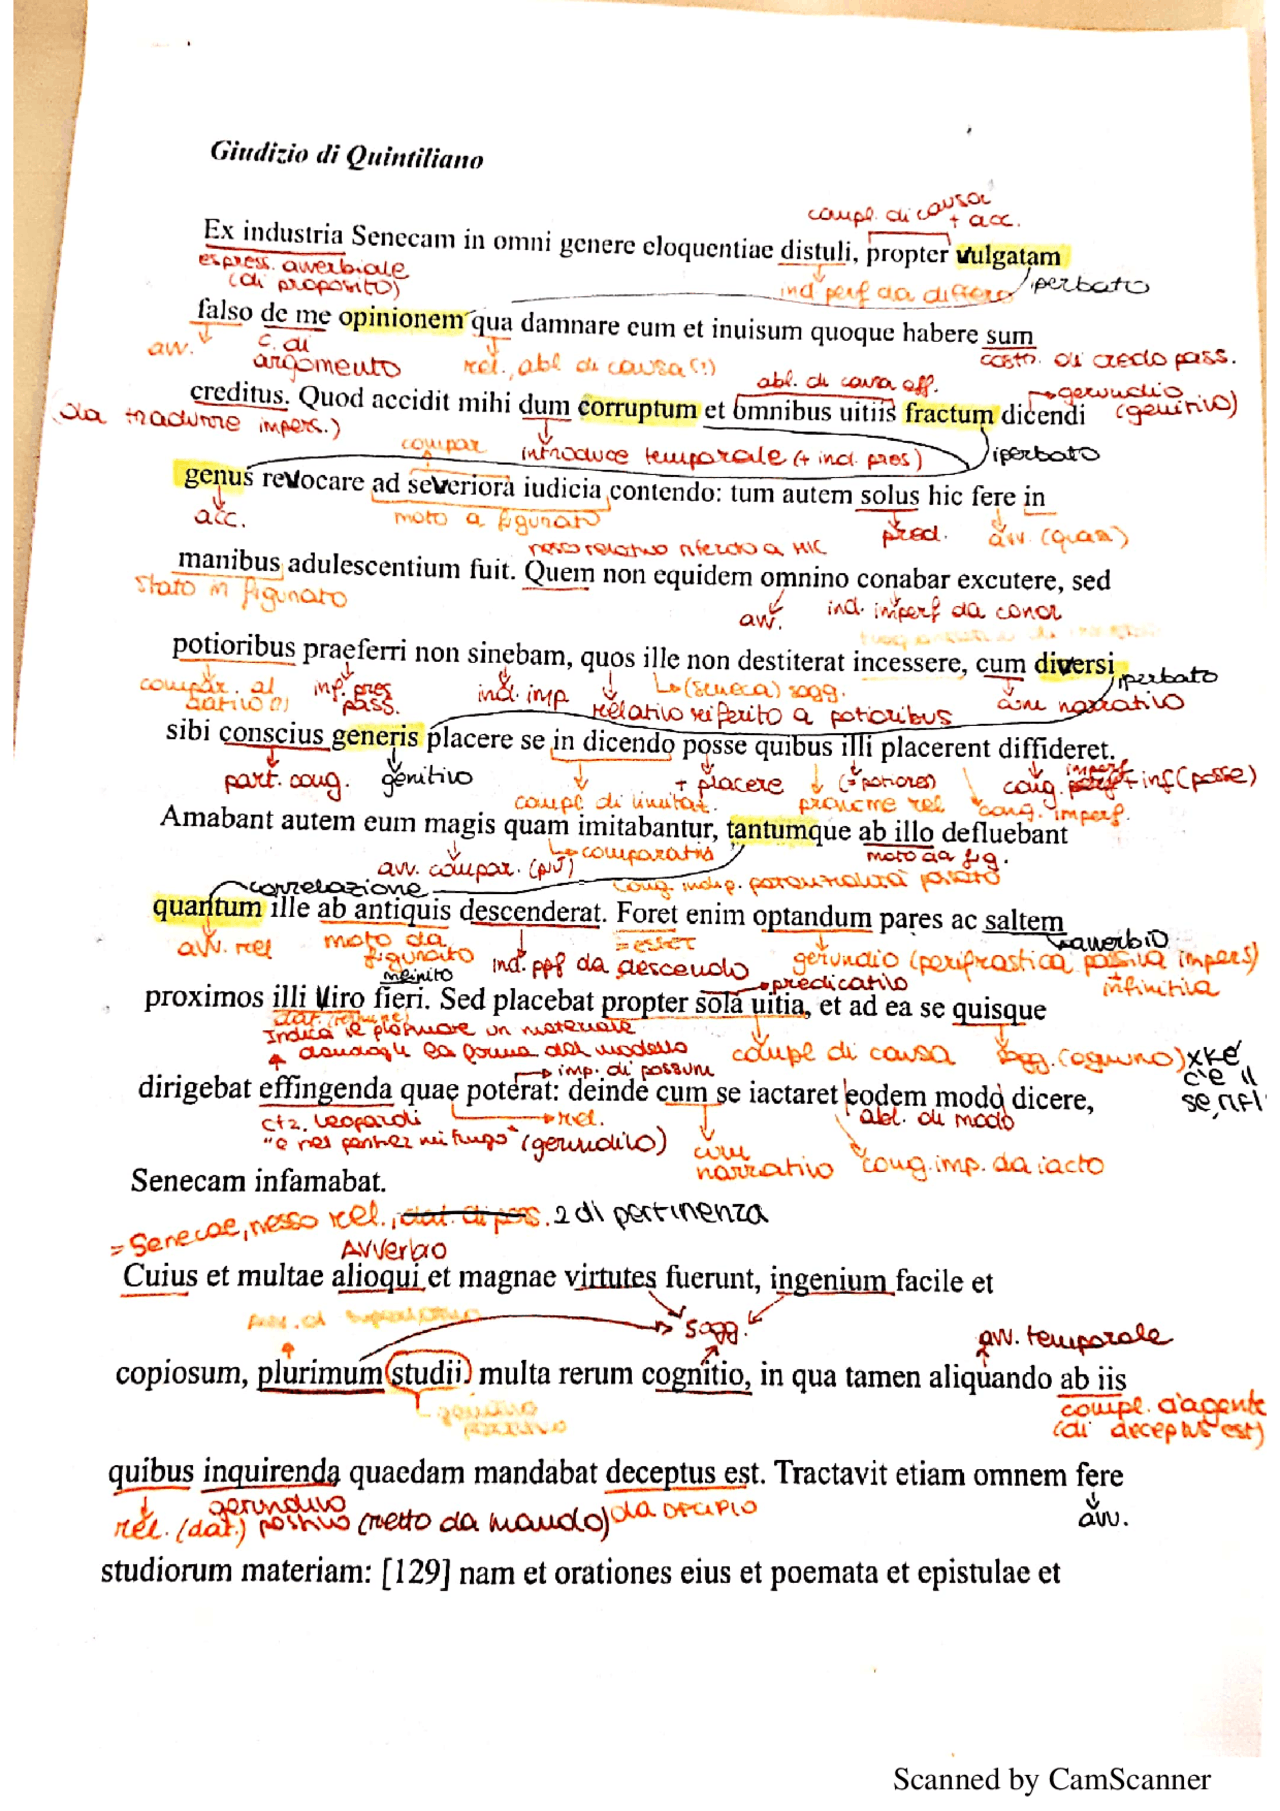 Giudizio di Quintiliano
compl. di causa
+ acc.
Ex industria Senecam in omni genere eloquentiae distuli, propter vulgatam
espress. avverbiale
(di proposito)
ind perf da differo
iperbato
falso de me opinionem qua damnare eum et inuisum quoque habere sum
avv.
c. di
argomento
rel., abl di causa (?)
costr. di credo pass.
abl. di causa eff.
gerundio
(genitivo)
creditus. Quod accidit mihi dum corruptum et omnibus uitiis fractum dicendi
(da tradurre impers.)
compar
introduce temporale (+ ind. pres)
iperbato
genus revocare ad severiora iudicia contendo: tum autem solus hic fere in
acc.
moto a figurato
pred.
avv. (quasi)
nesso relativo riferito a HIC
manibus adulescentium fuit. Quem non equidem omnino conabar excutere, sed
stato in figurato
avv.
ind. imperf da conor
potioribus praeferri non sinebam, quos ille non destiterat incessere, cum diversi
compar. al
dativo (?)
inf. pres
pass.
ind. imp.
relativo riferito a potioribus
(seneca) sogg.
cum narrativo
iperbato
sibi conscius generis placere se in dicendo posse quibus illi placerent diffideret.
part. cong.
genitivo
compl di limitaz.
+ placere
pronome rel
(= potiores)
cong. imperf.
cong. imperf + inf (posse)
Amabant autem eum magis quam imitabantur, tantumque ab illo defluebant
avv. compar. (più)
comparativa
moto da fig.
correlazione
quantum ille ab antiquis descenderat. Foret enim optandum pares ac saltem
avv. rel
moto da
figurato
ind. ppf da descendo
= esset
gerundio (perifrastica passiva impers)
avverbio
infinitiva
infinito
predicativo
proximos illi Viro fieri. Sed placebat propter sola uitia, et ad ea se quisque
Indica il plasmare un materiale
dandogli la forma del modello
compl di causa
sogg. (ognuno) xkè
c'è il
se, rifl
imp. di possum
dirigebat effingenda quae poterat: deinde cum se iactaret eodem modo dicere,
ctz. Leopardi
(gerundivo)
rel.
cum
narrativo
abl. di modo
cong. imp. da iacto
Senecam infamabat.
= Senecae, nesso rel., dat. di pos. 2 di pertinenza
Avverbio
Cuius et multae alioqui et magnae virtutes fuerunt, ingenium facile et
sogg.
avv. temporale
copiosum, plurimum studii multa rerum cognitio, in qua tamen aliquando ab iis
genitivo
partitivo
compl. d'agente
(di deceptus est)
quibus inquirenda quaedam mandabat deceptus est. Tractavit etiam omnem fere
rel. (dat.)
gerundivo
(retto da mando)
da DECIPIO
avv.
studiorum materiam: [129] nam et orationes eius et poemata et epistulae et
Scanned by CamScanner